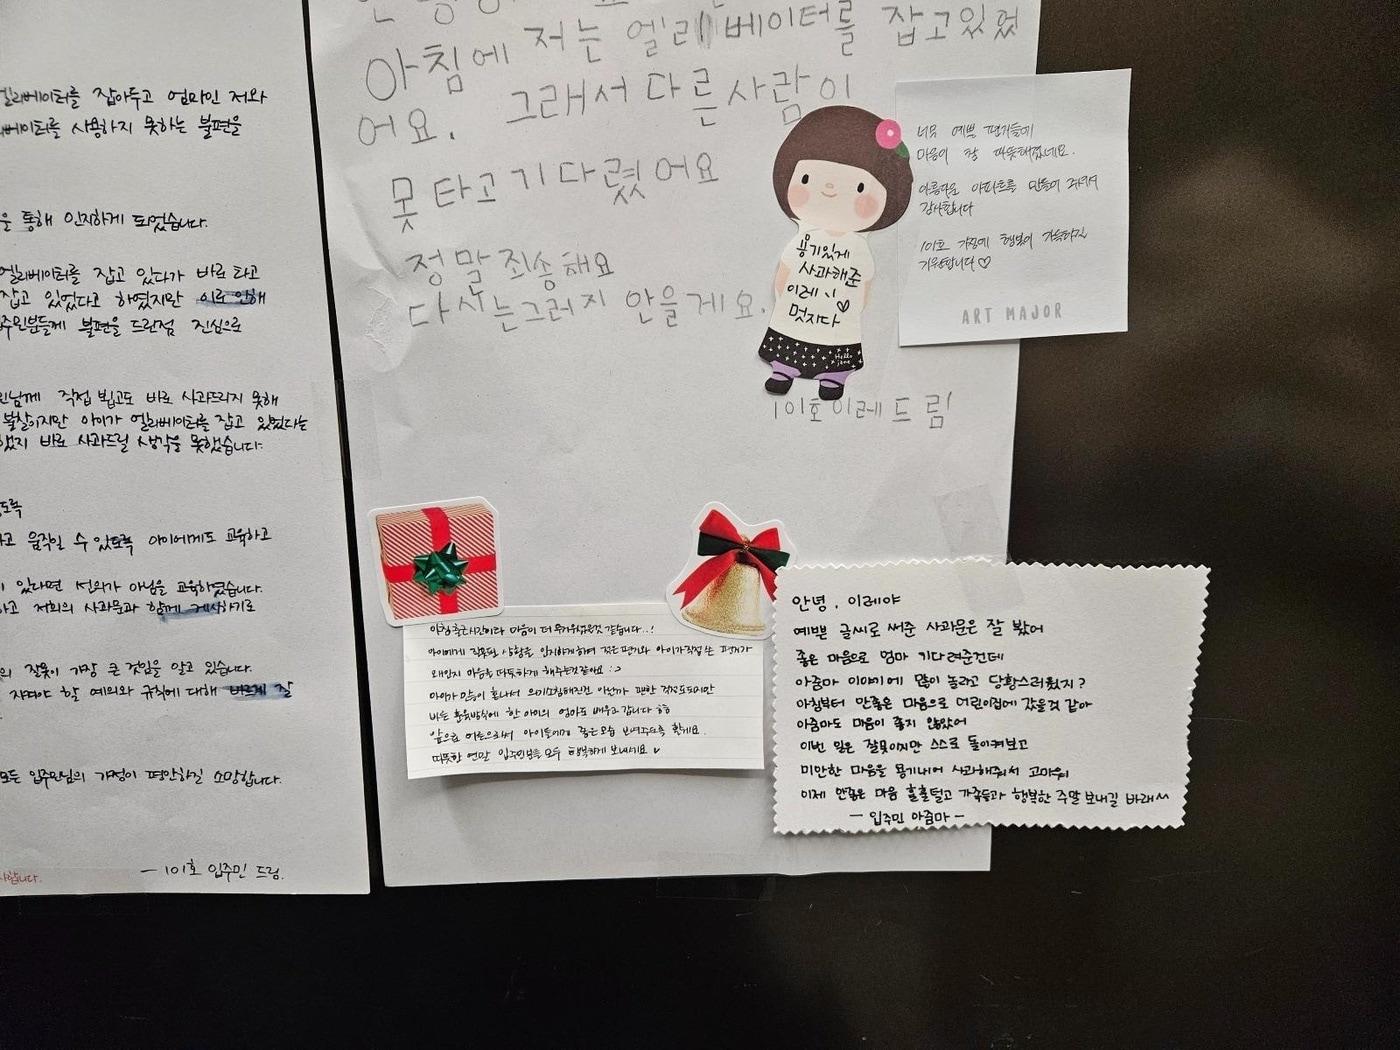 엘리베이터를 잡아두고 엄마인 저와
사용하지 못하는 불편을
통해 인지하게 되었습니다.
엘리베이터를 잡고 있다가 바로 타고
잡고 있었다고 하였지만 이로 인해
불편을 드린점 진심으로
직접 뵙고도 바로 사과드리지 못해
불찰이지만 아이가 엘리베이터를 잡고 있었다는
바로 사과드릴 생각을 못했습니다.
움직일 수 있도록 아이에게도 교육하고
있다면 선의가 아님을 교육하였습니다.
저희의 사과문과 함께 게시하기로
잘못이 가장 큰 것임을 알고 있습니다.
지켜야 할 예의와 규칙에 대해 바르게 잘
모든 입주민님의 가정이 평안하길 소망합니다.
— 101호 입주민 드림.
아침에 저는 엘리베이터를 잡고있었
어요. 그래서 다른사람이
못타고 기다렸어요
정말 죄송해요
다시는그러지 않을게요.
101호 이레드림
용기있게
사과해준
이레야 ♡
멋지다
Hello
jane
너무 예쁜 편지들에
마음이 참 따뜻해졌네요.
아름다운 아파트를 만들어 주셔서
감사합니다
101호 가정에 행복이 가득하길
기원합니다♡
ART MAJOR
아침 출근시간이라 마음이 더 무거우셨을것 같습니다..!
아이에게 잘못된 상황을 인지하게하며 적은 편지와 아이가 직접 쓴 편지가
왜인지 마음을 따뜻하게 해주는것같아요 :)
아이가 많이 혼나서 의기소침해진건 아닌가 괜한 걱정도되지만
바른 훈육방식에 한 아이의 엄마도 배우고 갑니다 ㅎㅎ
앞으로 어른으로써 아이들에게 좋은모습 보여주도록 할게요.
따뜻한 연말 입주민님들 모두 행복하게 보내세요 ♥
안녕, 이레야
예쁜 글씨로 써준 사과문은 잘 봤어
좋은 마음으로 엄마 기다려준건데
아줌마 이야기에 많이 놀라고 당황스러웠지?
아침부터 안좋은 마음으로 어린이집에 갔을것 같아
아줌마도 마음이 좋지 않았어
이번 일은 잘못이지만 스스로 돌이켜보고
미안한 마음을 용기내어 사과해줘서 고마워
이제 안좋은 마음 훌훌털고 가족들과 행복한 주말 보내길 바래^^
— 입주민 아줌마 —